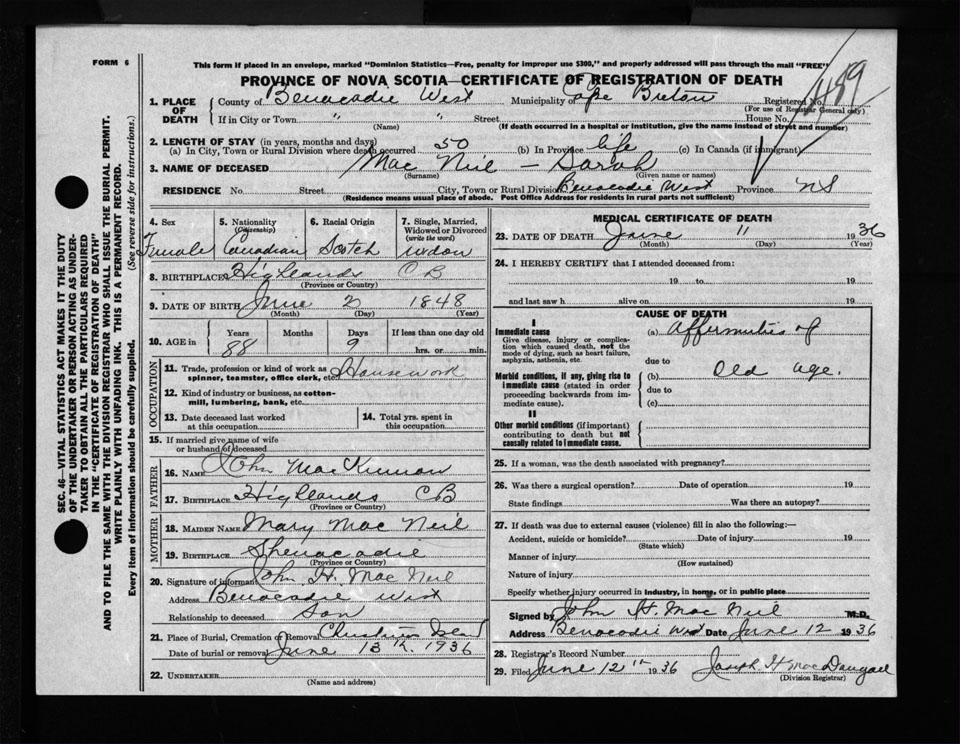 FORM 6
This form if placed in an envelope, marked "Dominion Statistics—Free, penalty for improper use $300," and properly addressed will pass through the mail "FREE"
PROVINCE OF NOVA SCOTIA—CERTIFICATE OF REGISTRATION OF DEATH
489
1. PLACE OF DEATH
County of Benacadie West Municipality of Cape Breton Registered No.
(For use of Registrar General only)
If in City or Town " " Street House No.
(Name) (If death occurred in a hospital or institution, give the name instead of street and number)
2. LENGTH OF STAY (in years, months and days)
(a) In City, Town or Rural Division where death occurred 50 (b) In Province life (c) In Canada (if immigrant)
3. NAME OF DECEASED Mac Neil — Sarah
(Surname) (Given name or names)
RESIDENCE No. Street City, Town or Rural Division Benacadie West Province NS
(Residence means usual place of abode. Post Office Address for residents in rural parts not sufficient)
SEC. 46—VITAL STATISTICS ACT MAKES IT THE DUTY
OF THE UNDERTAKER OR PERSON ACTING AS UNDER-
TAKER TO OBTAIN ALL THE PARTICULARS REQUIRED
IN THE "CERTIFICATE OF REGISTRATION OF DEATH"
AND TO FILE THE SAME WITH THE DIVISION REGISTRAR WHO SHALL ISSUE THE BURIAL PERMIT.
WRITE PLAINLY WITH UNFADING INK. THIS IS A PERMANENT RECORD.
Every item of information should be carefully supplied. (See reverse side for instructions.)
4. Sex 5. Nationality (Citizenship) 6. Racial Origin 7. Single, Married, Widowed or Divorced (write the word)
Female Canadian Scotch widow
8. BIRTHPLACE Highlands C B
(Province or Country)
9. DATE OF BIRTH June 2 1848
(Month) (Day) (Year)
10. AGE in Years Months Days If less than one day old
88 9 hrs. or min.
OCCUPATION
11. Trade, profession or kind of work as spinner, teamster, office clerk, etc. Housework
12. Kind of industry or business, as cotton-mill, lumbering, bank, etc.
13. Date deceased last worked at this occupation
14. Total yrs. spent in this occupation
15. If married give name of wife or husband of deceased
FATHER
16. NAME John MacKinnon
17. BIRTHPLACE Highlands CB
(Province or Country)
MOTHER
18. MAIDEN NAME Mary Mac Neil
19. BIRTHPLACE Shenacadie
(Province or Country)
20. Signature of informant John H. Mac Neil
Address Benacadie West
Relationship to deceased Son
21. Place of Burial, Cremation or Removal Christmas Island
Date of burial or removal June 13th. 1936
22. UNDERTAKER
(Name and address)
MEDICAL CERTIFICATE OF DEATH
23. DATE OF DEATH June 11 1936
(Month) (Day) (Year)
24. I HEREBY CERTIFY that I attended deceased from:
19 to 19
and last saw h alive on 19
CAUSE OF DEATH
I
Immediate cause
Give disease, injury or complication which caused death, not the mode of dying, such as heart failure, asphyxia, asthenia, etc.
(a) of
due to
Morbid conditions, if any, giving rise to immediate cause (stated in order proceeding backwards from immediate cause).
(b) Old age.
due to
(c)
II
Other morbid conditions (if important) contributing to death but not causally related to immediate cause.
25. If a woman, was the death associated with pregnancy?
26. Was there a surgical operation? Date of operation 19
State findings Was there an autopsy?
27. If death was due to external causes (violence) fill in also the following:—
Accident, suicide or homicide? Date of injury 19
(State which)
Manner of injury
(How sustained)
Nature of injury
Specify whether injury occurred in industry, in home, or in public place
Signed by John H. Mac Neil M.D.
Address Benacadie West Date June 12 1936
28. Registrar's Record Number
29. Filed June 12th 1936 Joseph H MacDougall
(Division Registrar)